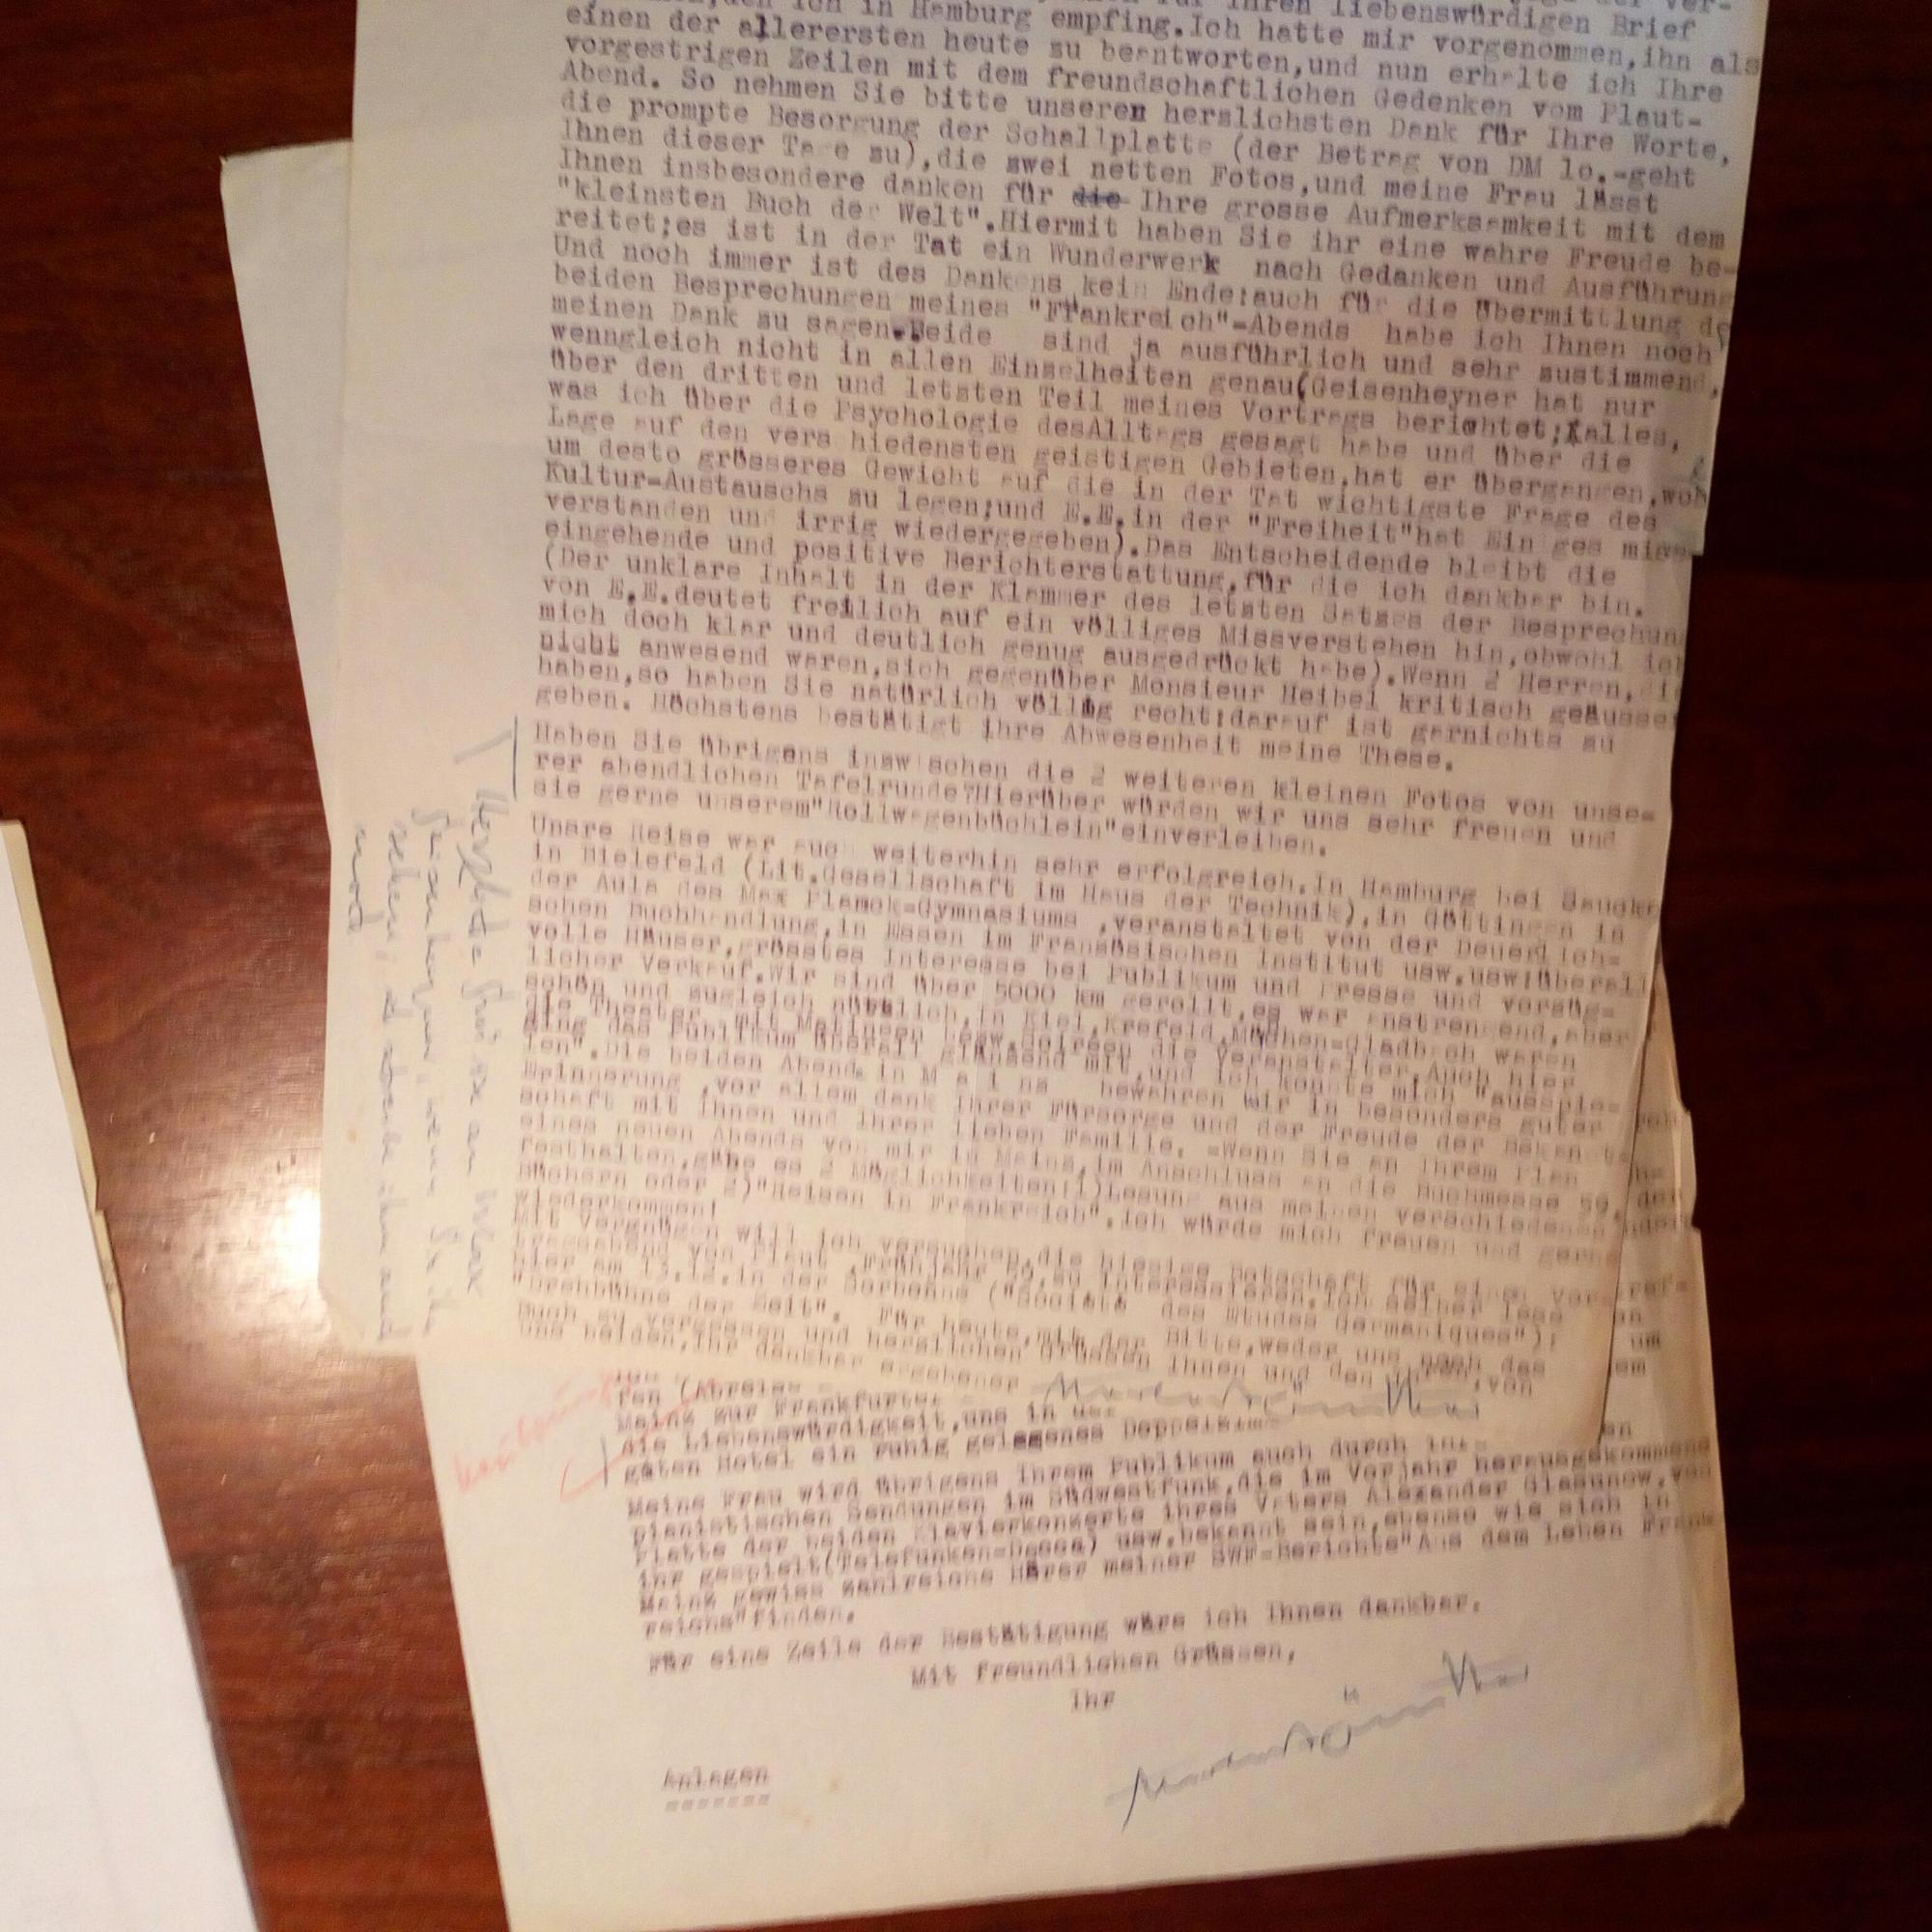 den ich in Hamburg empfing.Ich hatte mir vorgenommen,ihn als
Ihren liebenswürdigen Brief
einen der allerersten heute zu beantworten,und nun erhalte ich Ihre
vorgestrigen Zeilen mit dem freundschaftlichen Gedenken vom Plaut-
Abend. So nehmen Sie bitte unseren herzlichsten Dank für Ihre Worte,
die prompte Besorgung der Schallplatte (der Betrag von DM lo.-geht
Ihnen dieser Tage zu),die zwei netten Fotos,und meine Frau lässt
Ihnen insbesondere danken für die Ihre grosse Aufmerksamkeit mit dem
"kleinsten Buch der Welt".Hiermit haben Sie ihr eine wahre Freude be-
reitet;es ist in der Tat ein Wunderwerk nach Gedanken und Ausführung
Und noch immer ist des Dankens kein Ende:auch für die Übermittlung de
beiden Besprechungen meines "Frankreich"-Abends habe ich Ihnen noch
meinen Dank zu sagen.Beide sind ja ausführlich und sehr zustimmend,
wenngleich nicht in allen Einzelheiten genau(Geisenheyner hat nur
über den dritten und letzten Teil meines Vortrags berichtet;alles,
was ich über die Psychologie desAlltags gesagt habe und über die
Lage auf den verschiedensten geistigen Gebieten,hat er übergangen,woh
um desto grösseres Gewicht auf die in der Tat wichtigste Frage des
Kultur-Austauschs zu legen;und E.E.in der "Freiheit"hat Einiges miss-
verstanden und irrig wiedergegeben).Das Entscheidende bleibt die
eingehende und positive Berichterstattung,für die ich dankbar bin.
(Der unklare Inhalt in der Klammer des letzten Satzes der Besprechun
von E.E.deutet freilich auf ein völliges Missverstehen hin,obwohl ich
mich doch klar und deutlich genug ausgedrückt habe).Wenn 2 Herren,di
nicht anwesend waren,sich gegenüber Monsieur Heibel kritisch geäusse
haben,so haben Sie natürlich völlig recht:darauf ist garnichts zu
geben. Höchstens bestätigt ihre Abwesenheit meine These.
Haben Sie übrigens inzwischen die 2 weiteren kleinen Fotos von unse-
rer abendlichen Tafelrunde?Hierüber würden wir uns sehr freuen und
sie gerne unserem"Rollwagenbüchlein"einverleiben.
Unsre Reise war auch weiterhin sehr erfolgreich.In Hamburg bei Saucke
in Bielefeld (Lit.Gesellschaft im Haus der Technik),in Göttingen in
der Aula des Max Planck-Gymnasiums ,veranstaltet von der Deuerlich-
schen Buchhandlung,in Essen im Französischen Institut usw.usw:überall
volle Häuser,grösstes Interesse bei Publikum und Presse und vorzüg-
licher Verkauf.Wir sind über 5000 km gerollt,es war anstrengend,aber
schön und zugleich nützlich.In Kiel,Krefeld,München-Gladbach waren
die Theater mit Matineen bezw.Soireen die Veranstalter.Auch hier
ging das Publikum überall glänzend mit,und ich konnte mich "ausspie-
len".Die beiden Abende in M a i nz bewahren wir in besonders guter
Erinnerung ,vor allem dank Ihrer Fürsorge und der Freude der Bekannt-
schaft mit Ihnen und Ihrer lieben Familie. -Wenn Sie an Ihrem Plan
eines neuen Abends von mir in Mainz,im Anschluss an die Buchmesse 59,
festhalten,gäbe es 2 Möglichkeiten:1)Lesung aus meinen verschiedenen
Büchern oder 2)"Reisen in Frankreich".Ich würde mich freuen und gerne
wiederkommen!
Mit Vergnügen will ich versuchen,die hiesige Botschaft für einen
von Plaut ,Frühjahr 59,zu interessieren.Ich selber lese
hier am 13.12.in der Sorbonne ("Société des Etudes Germaniques"):
"Drehbühne der Zeit". Für heute,mit der Bitte,weder uns noch das
Buch zu vergessen und herzlichen Grüssen Ihnen und den Ihren,von
uns beiden,Ihr dankbar ergebener
Herzliche Grüsse an
Geisenheyner, wenn Sie ihn
sehen; ich schreibe ihm auch
noch
fen (Abreise
Mainz zur Frankfurter
die Liebenswürdigkeit,uns in
guten Hotel ein ruhig gelegenes Doppelzim
Meine Frau wird übrigens Ihrem Publikum auch durch
pianistischen Sendungen im Südwestfunk,die im Vorjahr herausgekommene
Platte der beiden Klavierkonzerte ihres Vaters Alexander Glasunow,von
ihr gespielt(Telefunken-Decca) usw.bekannt sein,ebenso wie sich in
Mainz gewiss zahlreiche Hörer meiner SWF-Berichte"Aus dem Leben Frank
reichs"finden.
Für eine Zeile der Bestätigung wäre ich Ihnen dankbar.
Mit freundlichen Grüssen,
Ihr
Anlagen